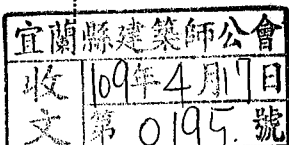 宜蘭縣建築師公會
收文 109年4月17日
第 0195. 號